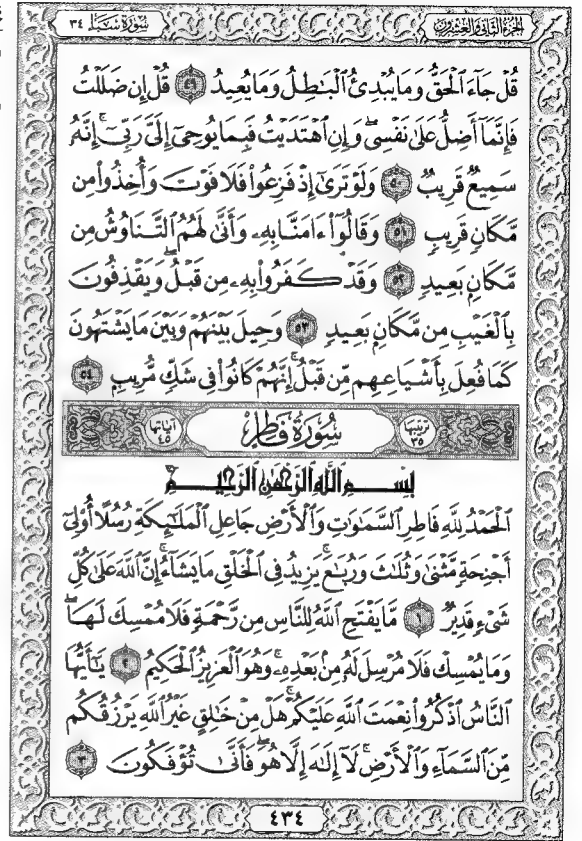 الجزء الثاني والعشرون سورة سبأ ٣٤
قُلْ جَآءَ ٱلْحَقُّ وَمَا يُبْدِئُ ٱلْبَٰطِلُ وَمَا يُعِيدُ ٤٩ قُلْ إِن ضَلَلْتُ
فَإِنَّمَآ أَضِلُّ عَلَىٰ نَفْسِى ۖ وَإِنِ ٱهْتَدَيْتُ فَبِمَا يُوحِىٓ إِلَىَّ رَبِّىٓ ۚ إِنَّهُۥ
سَمِيعٌ قَرِيبٌ ٥٠ وَلَوْ تَرَىٰٓ إِذْ فَزِعُوا۟ فَلَا فَوْتَ وَأُخِذُوا۟ مِن
مَّكَانٍ قَرِيبٍ ٥١ وَقَالُوٓا۟ ءَامَنَّا بِهِۦ وَأَنَّىٰ لَهُمُ ٱلتَّنَاوُشُ مِن
مَّكَانٍۭ بَعِيدٍ ٥٢ وَقَدْ كَفَرُوا۟ بِهِۦ مِن قَبْلُ ۖ وَيَقْذِفُونَ
بِٱلْغَيْبِ مِن مَّكَانٍۭ بَعِيدٍ ٥٣ وَحِيلَ بَيْنَهُمْ وَبَيْنَ مَا يَشْتَهُونَ
كَمَا فُعِلَ بِأَشْيَاعِهِم مِّن قَبْلُ ۚ إِنَّهُمْ كَانُوا۟ فِى شَكٍّ مُّرِيبٍۭ ٥٤
ترتيبها ٣٥ سورة فاطر آياتها ٤٥
بِسْمِ ٱللَّهِ ٱلرَّحْمَٰنِ ٱلرَّحِيمِ
ٱلْحَمْدُ لِلَّهِ فَاطِرِ ٱلسَّمَٰوَٰتِ وَٱلْأَرْضِ جَاعِلِ ٱلْمَلَٰٓئِكَةِ رُسُلًا أُو۟لِىٓ
أَجْنِحَةٍ مَّثْنَىٰ وَثُلَٰثَ وَرُبَٰعَ ۚ يَزِيدُ فِى ٱلْخَلْقِ مَا يَشَآءُ ۚ إِنَّ ٱللَّهَ عَلَىٰ كُلِّ
شَىْءٍ قَدِيرٌ ١ مَّا يَفْتَحِ ٱللَّهُ لِلنَّاسِ مِن رَّحْمَةٍ فَلَا مُمْسِكَ لَهَا ۖ
وَمَا يُمْسِكْ فَلَا مُرْسِلَ لَهُۥ مِنۢ بَعْدِهِۦ ۚ وَهُوَ ٱلْعَزِيزُ ٱلْحَكِيمُ ٢ يَٰٓأَيُّهَا
ٱلنَّاسُ ٱذْكُرُوا۟ نِعْمَتَ ٱللَّهِ عَلَيْكُمْ ۚ هَلْ مِنْ خَٰلِقٍ غَيْرُ ٱللَّهِ يَرْزُقُكُم
مِّنَ ٱلسَّمَآءِ وَٱلْأَرْضِ ۚ لَآ إِلَٰهَ إِلَّا هُوَ ۖ فَأَنَّىٰ تُؤْفَكُونَ ٣
٤٣٤